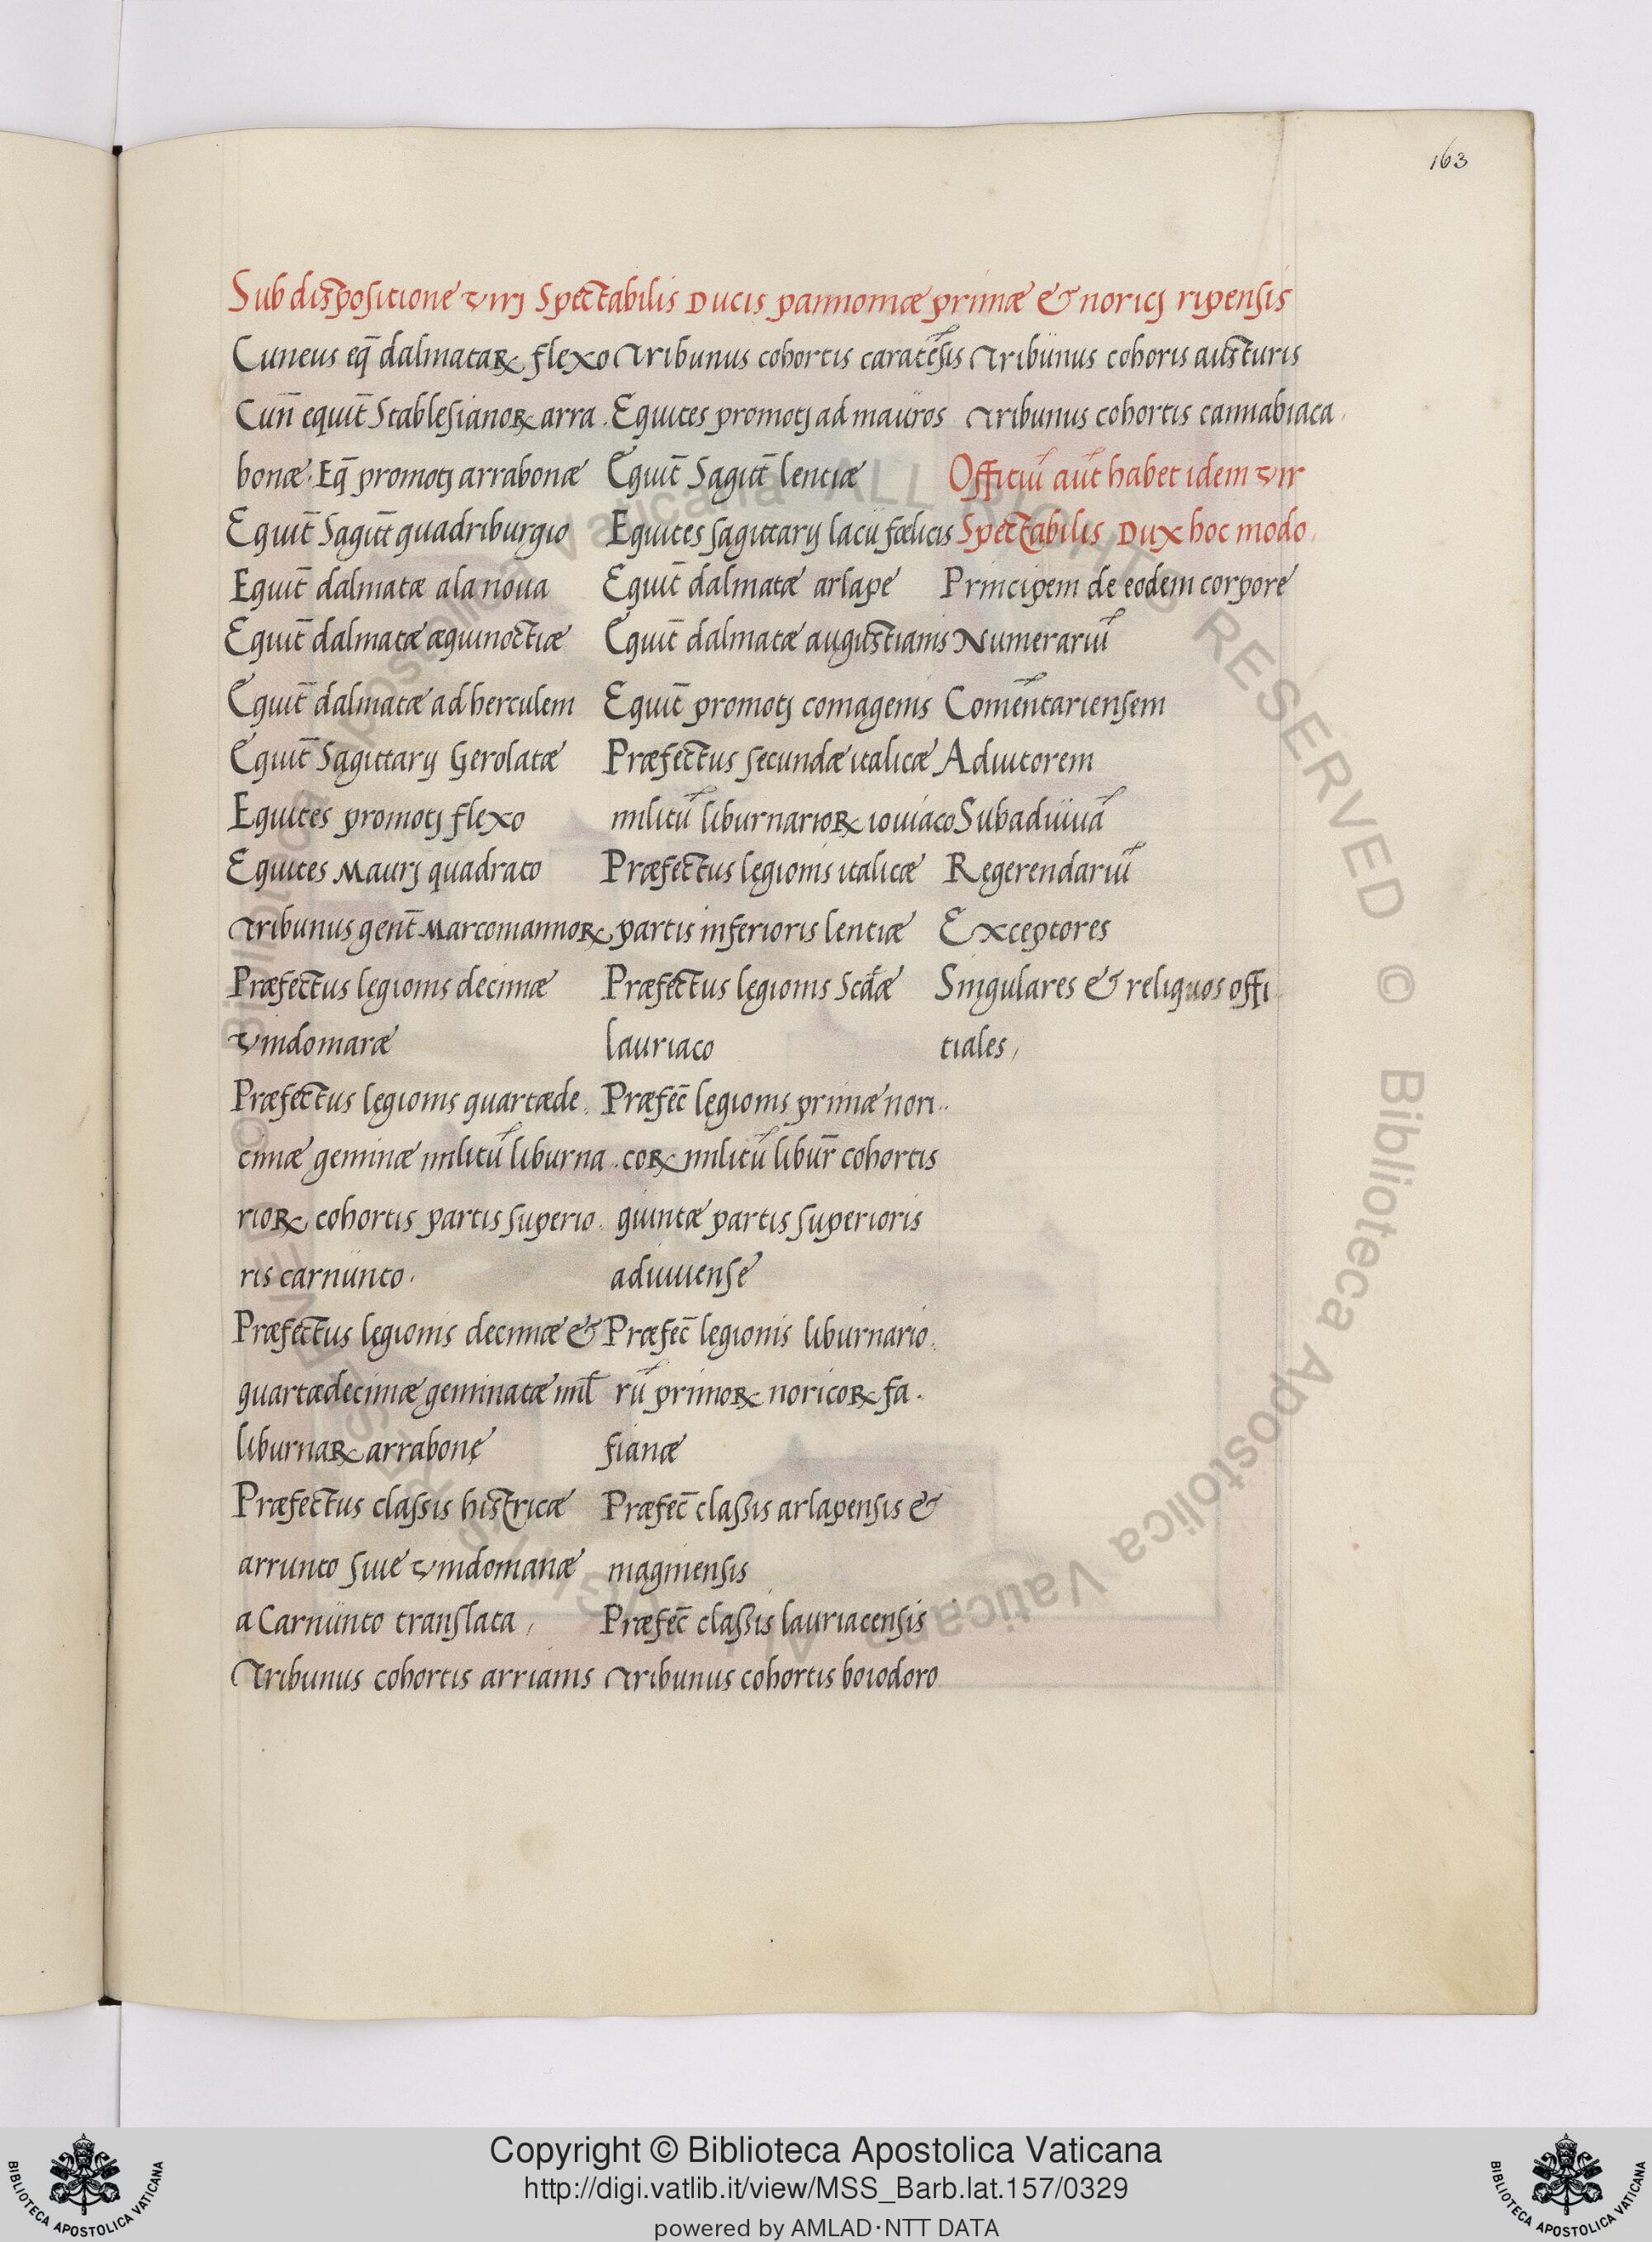 163
Sub dispositione virj Spectabilis Ducis pannoniæ primæ & noricj ripensis
Cuneus eq̄ dalmataꝝ flexo
Cun̄ equit̄ Stablesianoꝝ arra.
bonæ. Eq̄ promotj arrabonæ
Equit̄ Sagitt̄ quadriburgio
Equit̄ dalmatæ ala noua
Equit̄ dalmatæ æquinoctiæ
Equit̄ dalmatæ ad herculem
Equit̄ Sagittarij Gerolatæ
Equites promotj flexo
Equites Maurj quadrato
Tribunus gent̄ Marcomannoꝝ
Præfectus legionis decimæ
vindomaræ
Præfectus legionis quartæde.
cimæ geminæ militū liburna.
rioꝝ cohortis partis superio.
ris carnunto.
Præfectus legionis decimæ &
quartædecimæ geminatæ mil̄
liburnaꝝ arrabonę
Præfectus classis histricæ
arrunto siue vindomanæ
a Carnunto translata,
Tribunus cohortis arrianis
Tribunus cohortis caratēsis
Equites promotj ad mauros
Equit̄ Sagitt̄ lentiæ
Equites sagittarij lacu fœlicis
Equit̄ dalmatæ arlape
Equit̄ dalmatæ augustianis
Equit̄ promotj comagenis
Præfectus secundæ italicæ
militū liburnarioꝝ iouiaco
Præfectus legionis italicæ
partis inferioris lentiæ
Præfectus legionis Scd̄æ
lauriaco
Præfec̄ legionis primæ nori..
coꝝ militū libur̄ cohortis
quintæ partis superioris
adiuuense
Præfec̄ legionis liburnario.
rū primoꝝ noricoꝝ fa.
fianæ
Præfec̄ classis arlapensis &
maginensis
Præfec̄ classis lauriacensis
Tribunus cohortis boiodoro
Tribunus cohoris austuris
Tribunus cohortis cannabiaca.
Offitiū aūt habet idem vir
Spectabilis Dux hoc modo.
Principem de eodem corpore
Numerariū
Comēntariensem
Adiutorem
Subadiuuā
Regerendariū
Exceptores
Singulares & reliquos offi
tiales,
© Biblioteca Apostolica Vaticana ALL RIGHTS RESERVED © Biblioteca Apostolica Vaticana ALL RIGHTS RESERVED
Copyright © Biblioteca Apostolica Vaticana
http://digi.vatlib.it/view/MSS_Barb.lat.157/0329
powered by AMLAD·NTT DATA
BIBLIOTECA APOSTOLICA VATICANA
BIBLIOTECA APOSTOLICA VATICANA